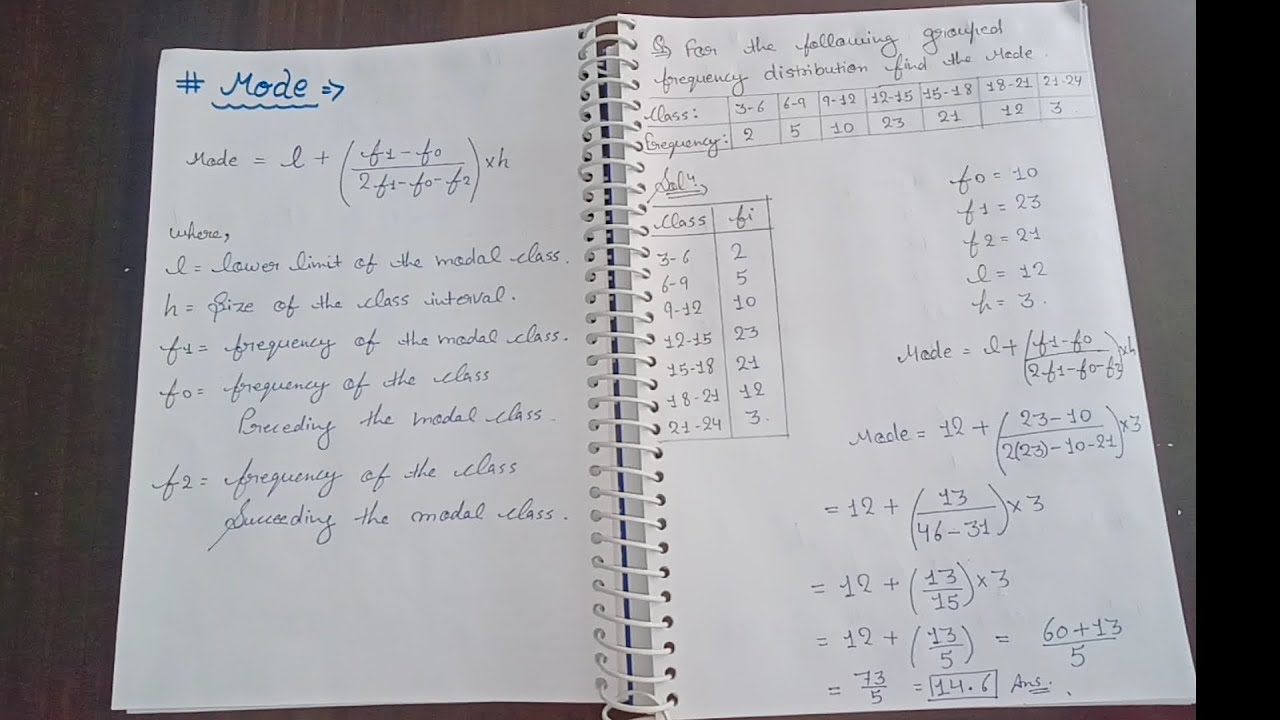 # Mode ⇒
Mode = l + (f1 - f0 / 2f1 - f0 - f2) × h
where,
l = lower limit of the modal class.
h = Size of the class interval.
f1 = frequency of the modal class.
f0 = frequency of the class
Preceding the modal class.
f2 = frequency of the class
Succeeding the modal class.
Q) For the following grouped
frequency distribution find the Mode.
Class: 3-6 6-9 9-12 12-15 15-18 18-21 21-24
frequency: 2 5 10 23 21 12 3
Solⁿ,
Class fi
3-6 2
6-9 5
9-12 10
12-15 23
15-18 21
18-21 12
21-24 3.
f0 = 10
f1 = 23
f2 = 21
l = 12
h = 3.
Mode = l + (f1 - f0 / 2f1 - f0 - f2) × h
Mode = 12 + (23 - 10 / 2(23) - 10 - 21) × 3
= 12 + (13 / 46 - 31) × 3
= 12 + (13 / 15) × 3
= 12 + (13 / 5) = 60 + 13 / 5
= 73 / 5 = 14.6 Ans.